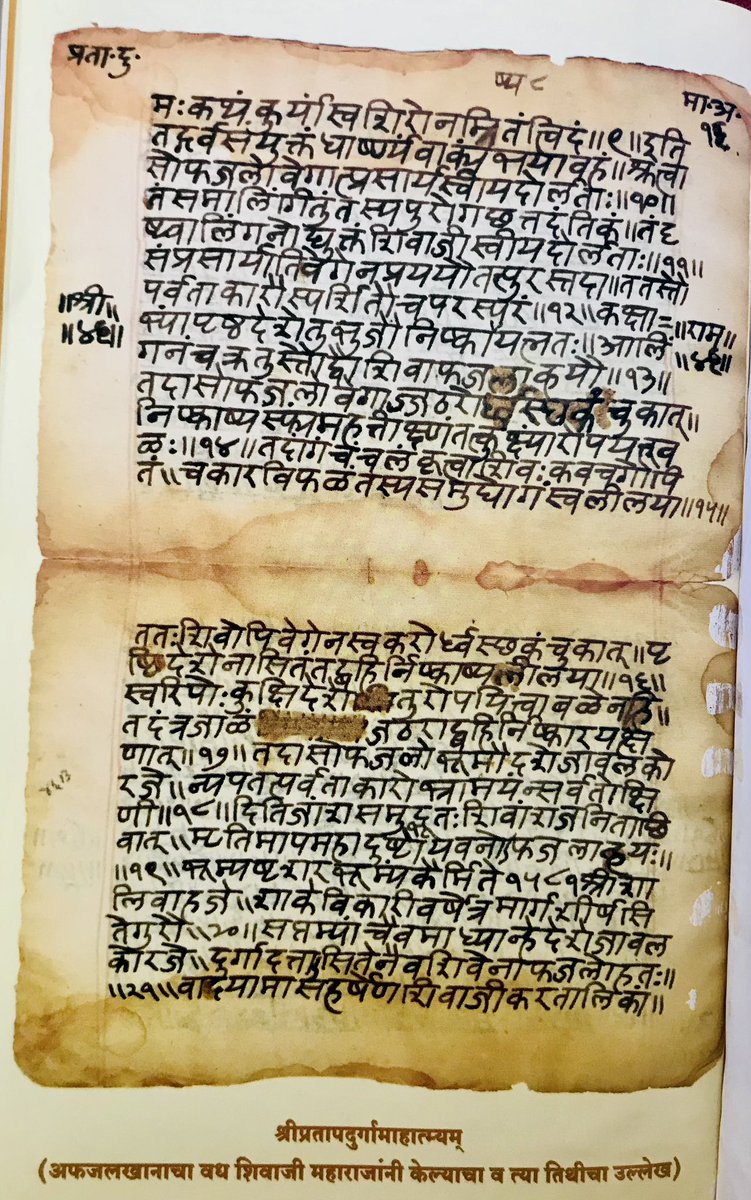 प्रता॰दु॰
ष्य८
मा॰अ॰
१६
मः कथं कुर्यां स्वशिरो नम्रितं त्विदं॥९॥इति
तद्गर्वसंयुक्तं धार्ष्ण्यं वाक्यं भयावहं॥श्रुत्वा
सोफजलो वेगात्प्रसार्य स्वीयदोर्लताः॥१०॥
तं समालिंगीतुं तस्य पुरोगछत्तदंतिकं॥तं दृ
ष्वालिंगनोद्युक्तं शिवाजी स्वीयदोर्लताः॥११॥
संप्रसार्यातिवेगेन प्रययौ तत्पुरस्तदा॥ततस्तौ
पर्वताकारौ स्पर्शितौ च परस्परं॥१२॥कक्षा=
॥श्री॥
॥४६॥
॥राम॥
॥४६॥
भ्यां पृष्ठदेशे तु भुजौ निष्कास्य यत्नतः॥आलिं
गनं चक्रतुस्तौ द्वौ शिवाफजलाकयौ॥१३॥
तदा सोफजलो वेगाज्जठरो चुकात्॥
निष्काष्य महत्तीक्ष्णं तत्कुक्ष्यारोपयत्खव
ळः॥१४॥तदागं चंचलं कृत्वा शिवः कवचगोपि
तं॥चकार विफळं तस्य समुद्योगं स्वलीलया॥१५॥
ततः शिवोपि वेगेन स्वकरोर्ध्वस्छकंचुकात्॥पृ
ष्ठिदेशेनासितं तद्बहिर्निष्काष्य लीलया॥१६॥
स्वरिपोः कुक्षिदेशे तु रोपयित्वा बळेन हि॥
तदंत्रजाळं जठराद्बहिर्निष्कारयत्क्ष
णात्॥१७॥तदा सोफजलो भूमौ देशे जावलको
रजे॥न्यपतत्पर्वताकारो भ्रामयन्सर्वताक्षि
णी॥१८॥दितिजांशसमुद्भूतः शिवांशजनिताछि
वात्॥मृतिमाप महादुष्टो यवनोफजलाह्वयः॥
॥१९॥भूम्यष्टशरभूम्यंकैर्मिते १५८१ श्रीशा
लिवाहजे॥शाके विकारीवर्षेत्र मार्गशीर्षसि
तेगुरौ॥२०॥सप्तम्यां चैव माध्यान्हे देशे जावल
कोरजे॥दुर्गादत्तासितेनैव शिवेनोफजलो हतः॥
॥२१॥वादयामास हर्षेण शिवाजी करतालिकां॥
श्रीप्रतापदुर्गामाहात्म्यम्
(अफजलखानाचा वध शिवाजी महाराजांनी केल्याचा व त्या तिथीचा उल्लेख)